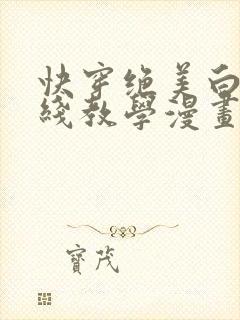 快穿绝美白
綫教學漫畫
寶茂